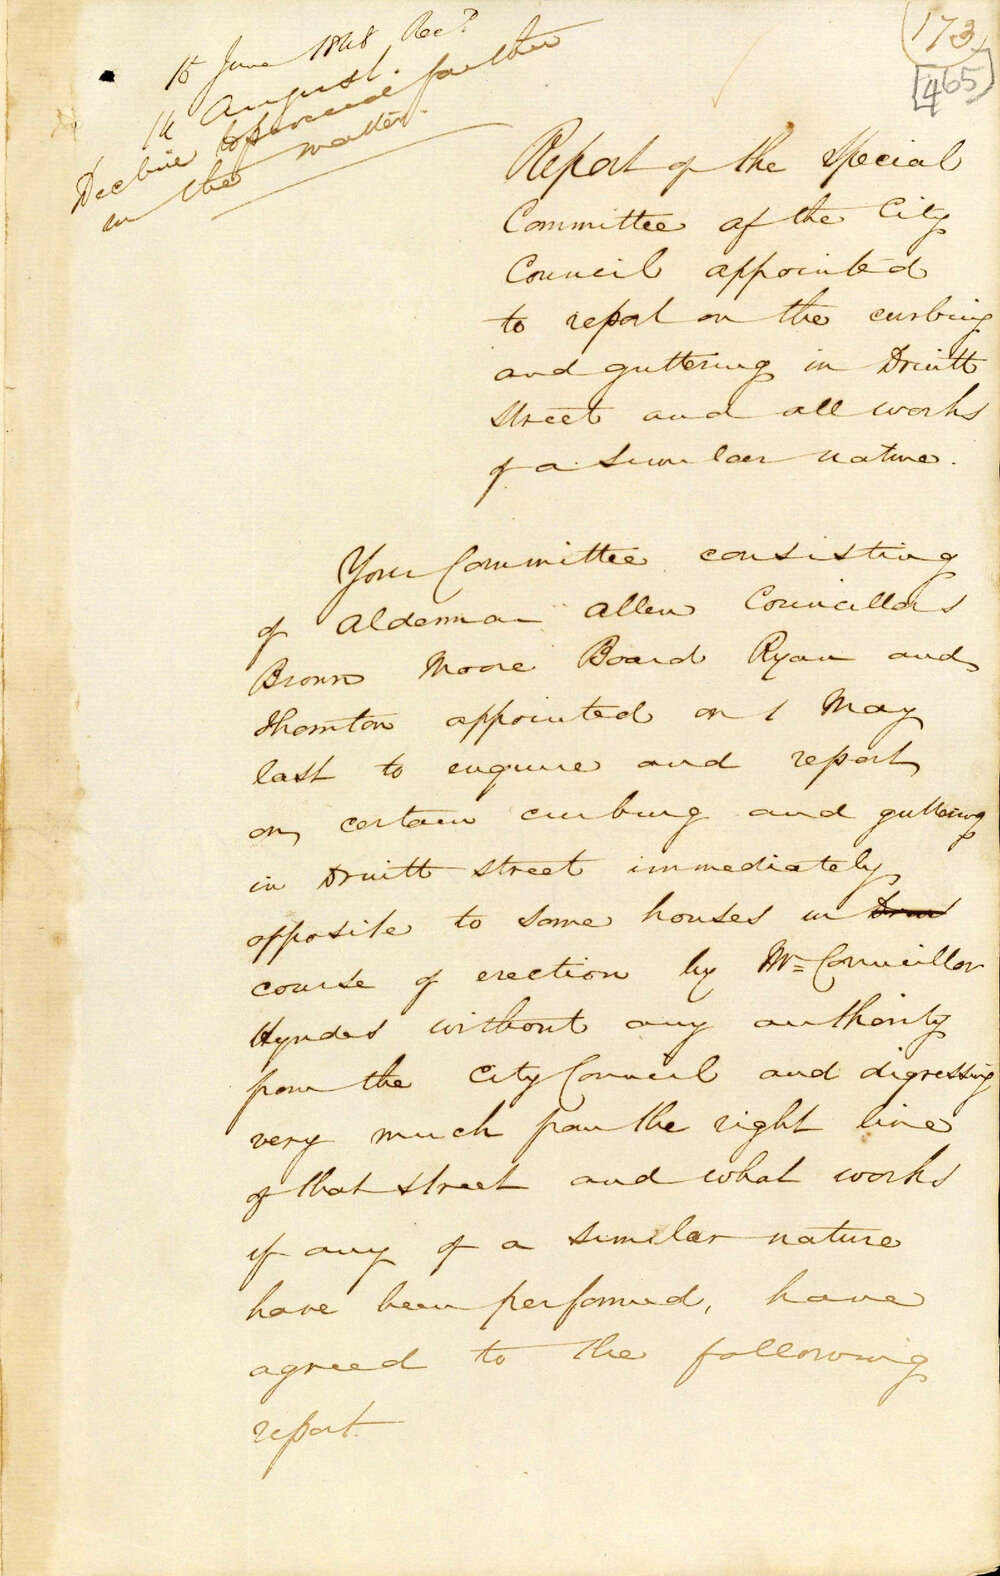 15 June 1848 Recd
14 August.
Decline to proceed further
in the matter.
173
[465]
Report of the Special
Committee of the City
Council appointed
to report on the curbing
and guttering in Druitt
Street and all works
of a similar nature.
Your Committee consisting
of Alderman Allen Councillors
Brown Moore Board Ryan and
Thornton appointed on 1 May
last to enquire and report
on certain curbing and guttering
in Druitt Street immediately
opposite to some houses in Druit
course of erection by Mr Councillor
Hyndes without any authority
from the City Council and digressing
very much from the right line
of that street and what works
if any of a similar nature
have been performed, have
agreed to the following
report.